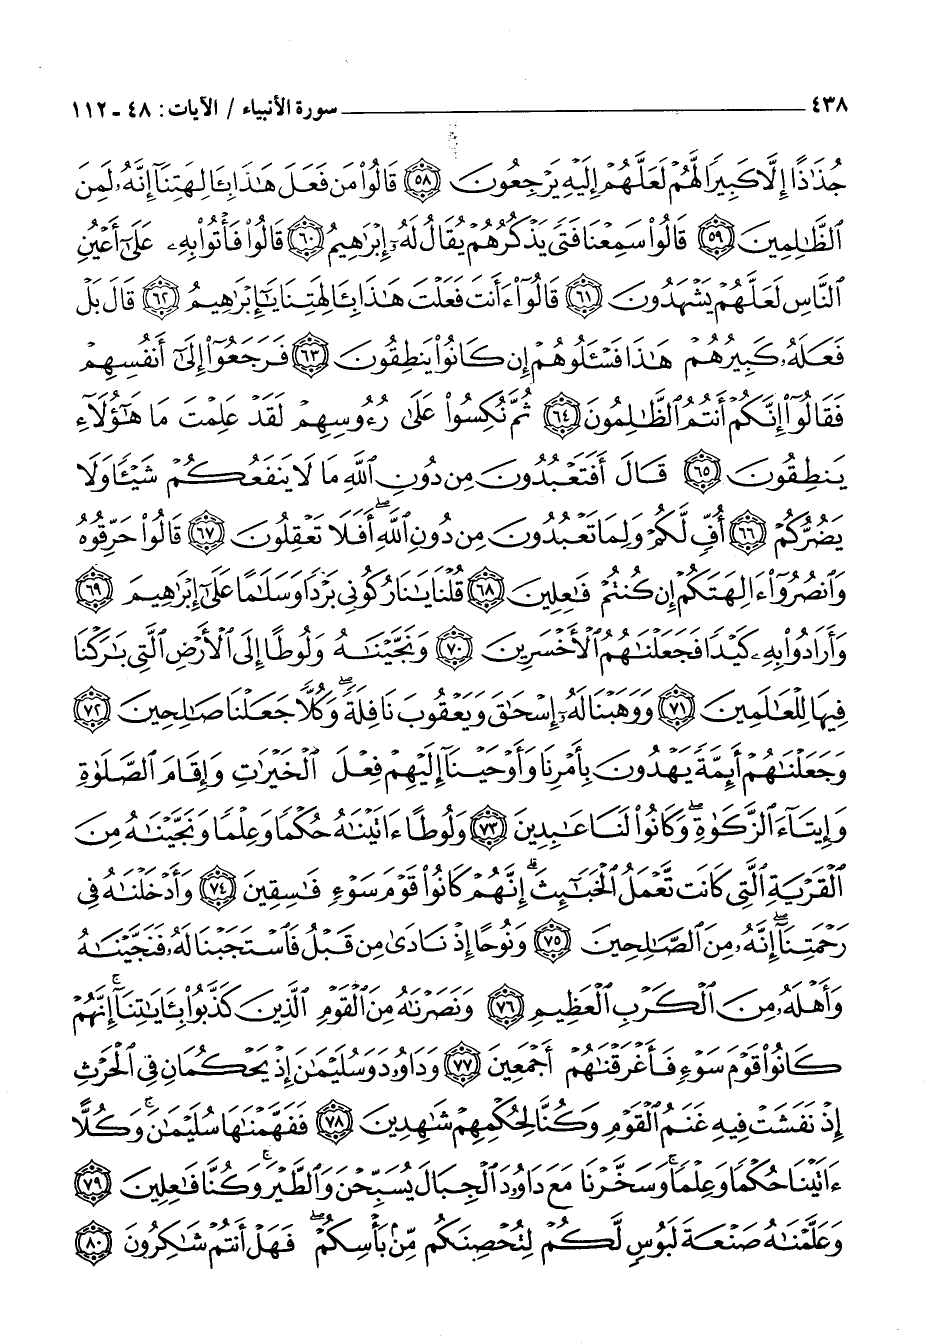 ٤٣٨ سورة الأنبياء / الآيات : ٤٨ - ١١٢
جُذَاذًا إِلَّا كَبِيرًا لَّهُمْ لَعَلَّهُمْ إِلَيْهِ يَرْجِعُونَ ﴿٥٨﴾ قَالُوا۟ مَن فَعَلَ هَـٰذَا بِـَٔالِهَتِنَآ إِنَّهُۥ لَمِنَ
ٱلظَّـٰلِمِينَ ﴿٥٩﴾ قَالُوا۟ سَمِعْنَا فَتًى يَذْكُرُهُمْ يُقَالُ لَهُۥٓ إِبْرَٰهِيمُ ﴿٦٠﴾ قَالُوا۟ فَأْتُوا۟ بِهِۦ عَلَىٰٓ أَعْيُنِ
ٱلنَّاسِ لَعَلَّهُمْ يَشْهَدُونَ ﴿٦١﴾ قَالُوٓا۟ ءَأَنتَ فَعَلْتَ هَـٰذَا بِـَٔالِهَتِنَا يَـٰٓإِبْرَٰهِيمُ ﴿٦٢﴾ قَالَ بَلْ
فَعَلَهُۥ كَبِيرُهُمْ هَـٰذَا فَسْـَٔلُوهُمْ إِن كَانُوا۟ يَنطِقُونَ ﴿٦٣﴾ فَرَجَعُوٓا۟ إِلَىٰٓ أَنفُسِهِمْ
فَقَالُوٓا۟ إِنَّكُمْ أَنتُمُ ٱلظَّـٰلِمُونَ ﴿٦٤﴾ ثُمَّ نُكِسُوا۟ عَلَىٰ رُءُوسِهِمْ لَقَدْ عَلِمْتَ مَا هَـٰٓؤُلَآءِ
يَنطِقُونَ ﴿٦٥﴾ قَالَ أَفَتَعْبُدُونَ مِن دُونِ ٱللَّهِ مَا لَا يَنفَعُكُمْ شَيْـًٔا وَلَا
يَضُرُّكُمْ ﴿٦٦﴾ أُفٍّ لَّكُمْ وَلِمَا تَعْبُدُونَ مِن دُونِ ٱللَّهِ ۖ أَفَلَا تَعْقِلُونَ ﴿٦٧﴾ قَالُوا۟ حَرِّقُوهُ
وَٱنصُرُوٓا۟ ءَالِهَتَكُمْ إِن كُنتُمْ فَـٰعِلِينَ ﴿٦٨﴾ قُلْنَا يَـٰنَارُ كُونِى بَرْدًا وَسَلَـٰمًا عَلَىٰٓ إِبْرَٰهِيمَ ﴿٦٩﴾
وَأَرَادُوا۟ بِهِۦ كَيْدًا فَجَعَلْنَـٰهُمُ ٱلْأَخْسَرِينَ ﴿٧٠﴾ وَنَجَّيْنَـٰهُ وَلُوطًا إِلَى ٱلْأَرْضِ ٱلَّتِى بَـٰرَكْنَا
فِيهَا لِلْعَـٰلَمِينَ ﴿٧١﴾ وَوَهَبْنَا لَهُۥٓ إِسْحَـٰقَ وَيَعْقُوبَ نَافِلَةً ۖ وَكُلًّا جَعَلْنَا صَـٰلِحِينَ ﴿٧٢﴾
وَجَعَلْنَـٰهُمْ أَئِمَّةً يَهْدُونَ بِأَمْرِنَا وَأَوْحَيْنَآ إِلَيْهِمْ فِعْلَ ٱلْخَيْرَٰتِ وَإِقَامَ ٱلصَّلَوٰةِ
وَإِيتَآءَ ٱلزَّكَوٰةِ ۖ وَكَانُوا۟ لَنَا عَـٰبِدِينَ ﴿٧٣﴾ وَلُوطًا ءَاتَيْنَـٰهُ حُكْمًا وَعِلْمًا وَنَجَّيْنَـٰهُ مِنَ
ٱلْقَرْيَةِ ٱلَّتِى كَانَت تَّعْمَلُ ٱلْخَبَـٰٓئِثَ ۗ إِنَّهُمْ كَانُوا۟ قَوْمَ سَوْءٍ فَـٰسِقِينَ ﴿٧٤﴾ وَأَدْخَلْنَـٰهُ فِى
رَحْمَتِنَآ ۖ إِنَّهُۥ مِنَ ٱلصَّـٰلِحِينَ ﴿٧٥﴾ وَنُوحًا إِذْ نَادَىٰ مِن قَبْلُ فَٱسْتَجَبْنَا لَهُۥ فَنَجَّيْنَـٰهُ
وَأَهْلَهُۥ مِنَ ٱلْكَرْبِ ٱلْعَظِيمِ ﴿٧٦﴾ وَنَصَرْنَـٰهُ مِنَ ٱلْقَوْمِ ٱلَّذِينَ كَذَّبُوا۟ بِـَٔايَـٰتِنَآ ۚ إِنَّهُمْ
كَانُوا۟ قَوْمَ سَوْءٍ فَأَغْرَقْنَـٰهُمْ أَجْمَعِينَ ﴿٧٧﴾ وَدَاوُۥدَ وَسُلَيْمَـٰنَ إِذْ يَحْكُمَانِ فِى ٱلْحَرْثِ
إِذْ نَفَشَتْ فِيهِ غَنَمُ ٱلْقَوْمِ وَكُنَّا لِحُكْمِهِمْ شَـٰهِدِينَ ﴿٧٨﴾ فَفَهَّمْنَـٰهَا سُلَيْمَـٰنَ ۚ وَكُلًّا
ءَاتَيْنَا حُكْمًا وَعِلْمًا ۚ وَسَخَّرْنَا مَعَ دَاوُۥدَ ٱلْجِبَالَ يُسَبِّحْنَ وَٱلطَّيْرَ ۚ وَكُنَّا فَـٰعِلِينَ ﴿٧٩﴾
وَعَلَّمْنَـٰهُ صَنْعَةَ لَبُوسٍ لَّكُمْ لِتُحْصِنَكُم مِّنۢ بَأْسِكُمْ ۖ فَهَلْ أَنتُمْ شَـٰكِرُونَ ﴿٨٠﴾